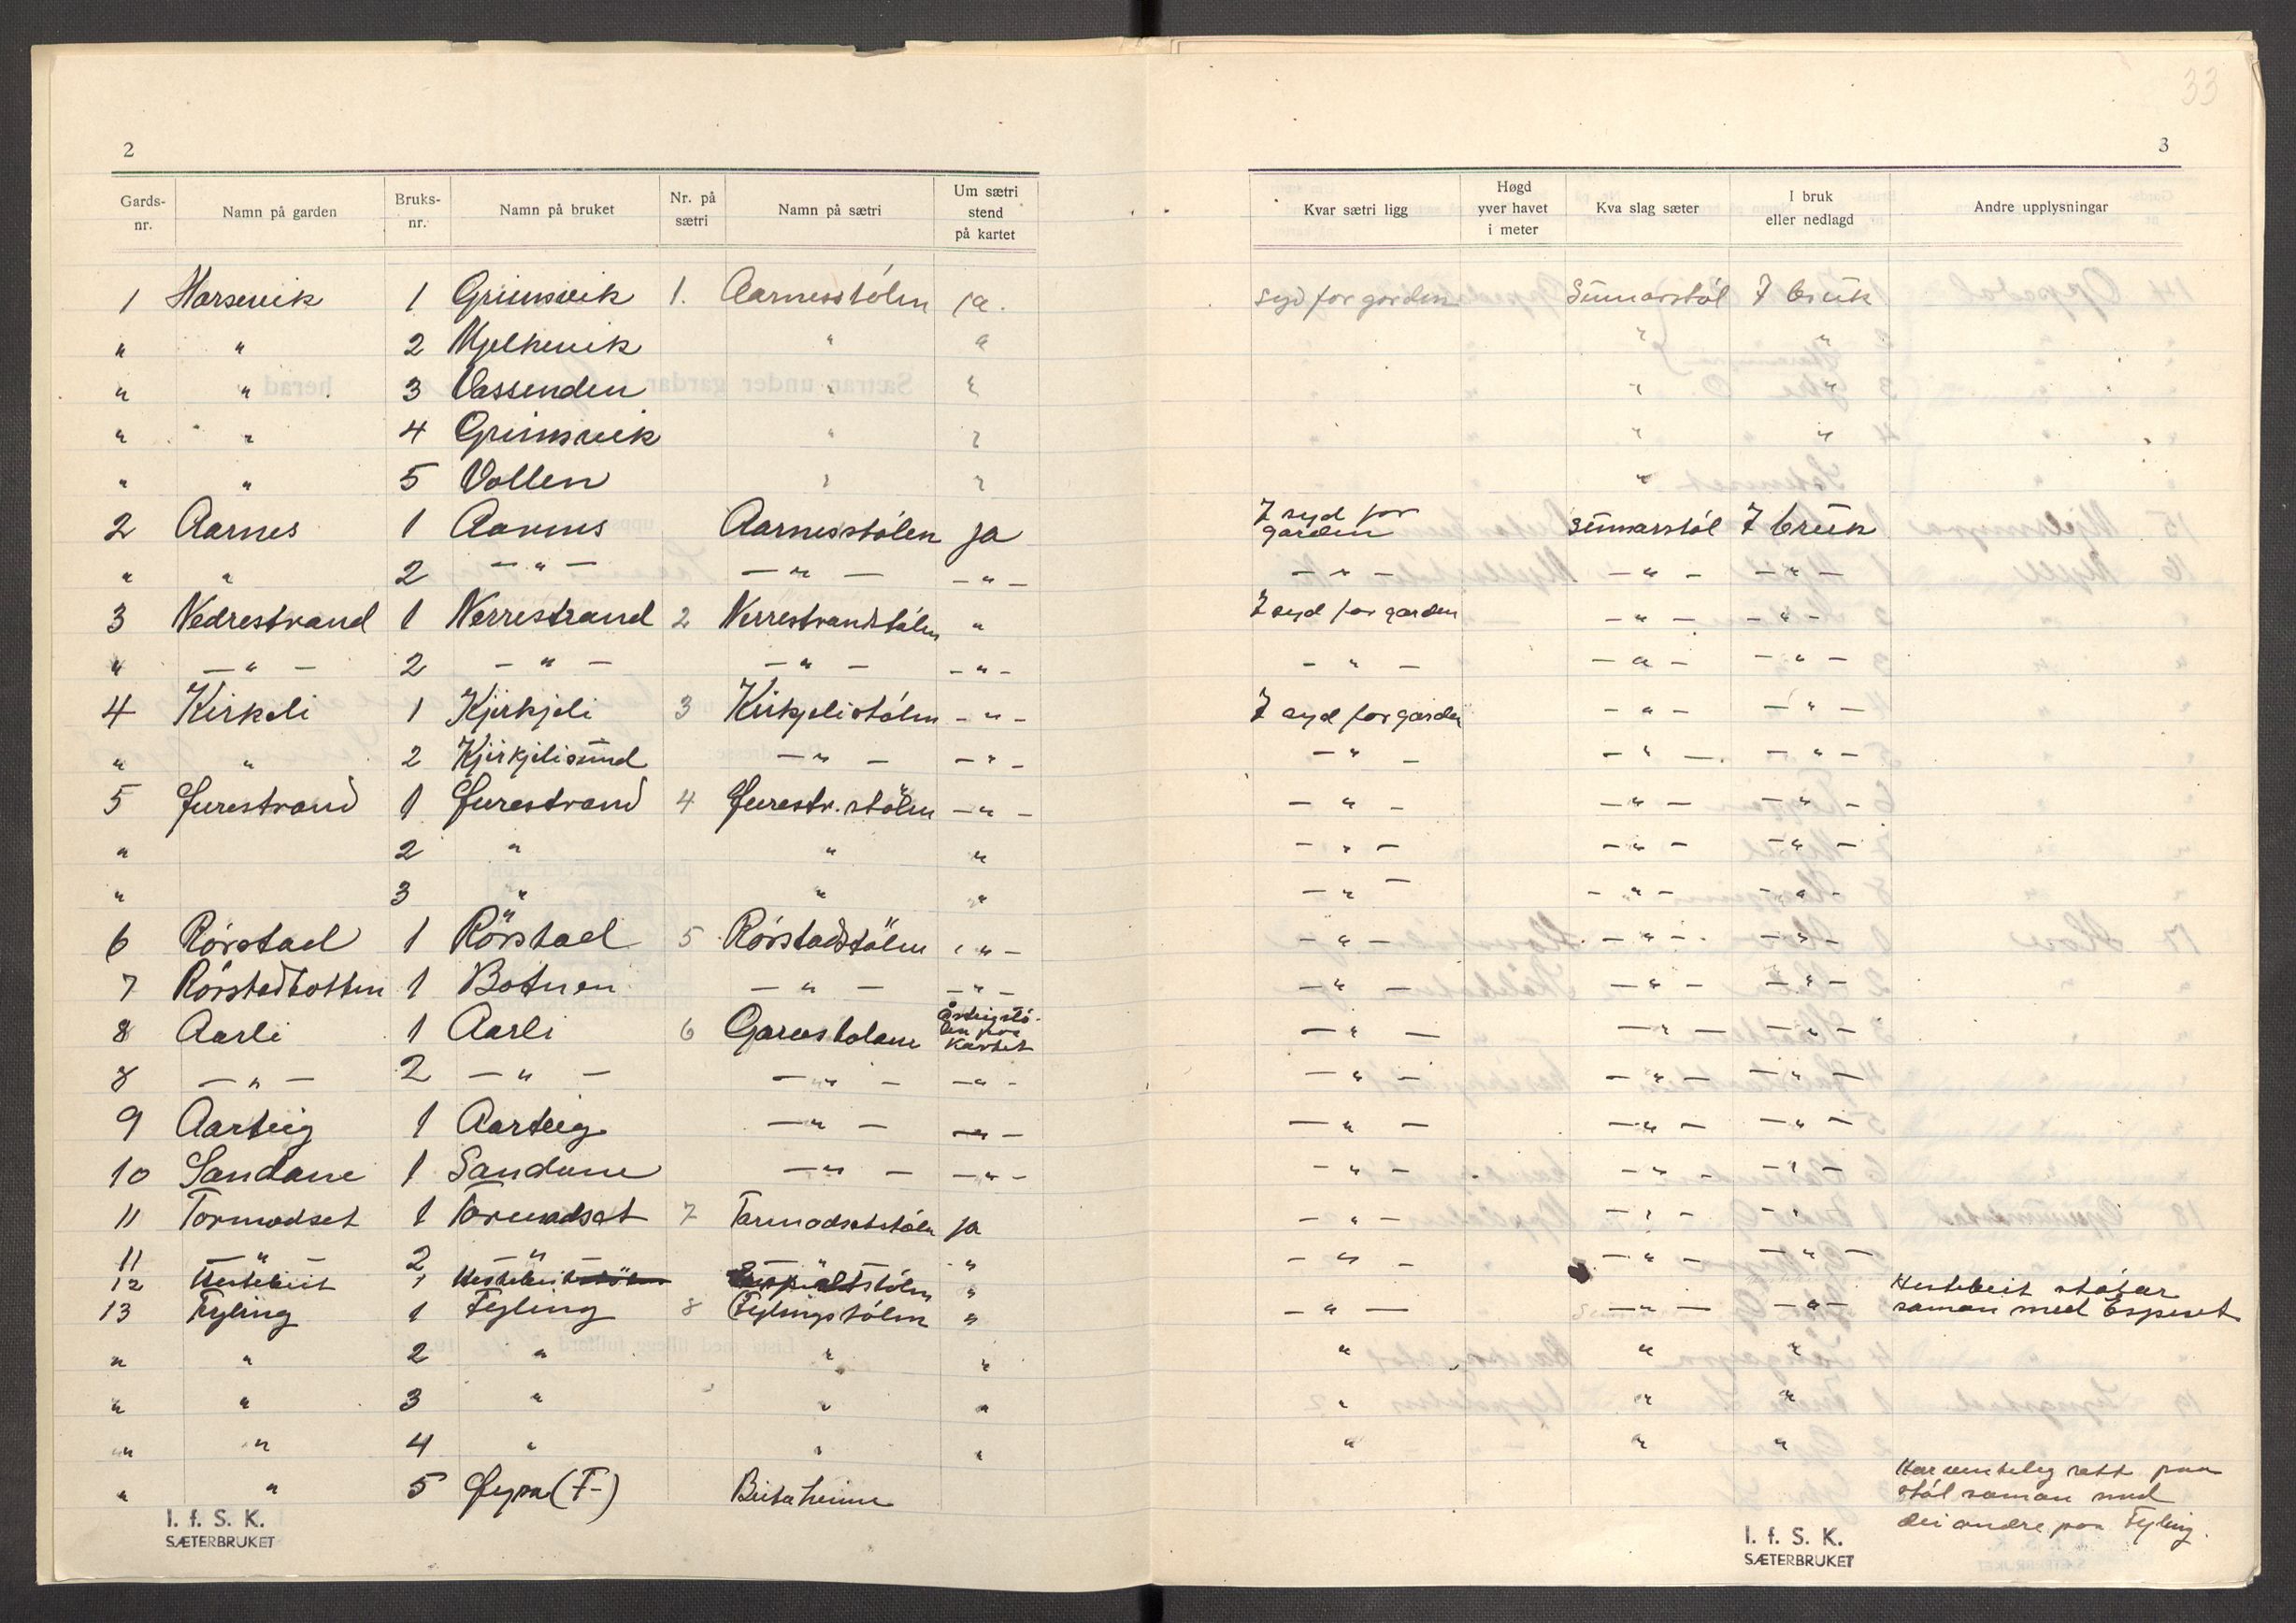 33
2
Gards- nr. Namn på garden Bruks- nr. Namn på bruket Nr. på sætri Namn på sætri Um sætri stend på kartet
1 Harsvik 1 Grimsvik 1. Aarnesstólen ja.
" " 2 Mjelkevik " "
" " 3 Vassenden " "
" " 4 Grimsvik " "
" " 5 Vollen " "
2 Aarnes 1 Aarnes Aarnesstólen ja
" " 2 - " - - " - - " -
3 Nedrestrand 1 Nerrestrand 2 Nerrestrandstólen "
" - " - 2 - " - - " - - " -
4 Kirkeli 1 Kjirkjeli 3 Kirkjelistólen - " -
" " 2 Kjirkjelisund - " - - " -
5 Furestrand 1 Furestrand 4 Furestr.stólen - " -
" 2 " " "
" 3 " " "
6 Rörstad 1 Rörstad 5 Rörstadstólen - " -
7 Rörstadbotten 1 Botnen - " - - " -
8 Aarli 1 Aarli 6 Garosstolane Årteigstó- len paa kartet
8 - " - 2 - " - - " - - " -
9 Aarteig 1 Aarteig - " - - " -
10 Sandane 1 Sandane - " - - " -
11 Tormodset 1 Tormodset 7 Tormodsetstólen ja
11 - " - 2 - " - - " - "
12 Hestebeit 1 Hestebeit "
13 Fyling 1 Fyling 8 Fylingstólen "
" " 2 " " "
" " 3 " " "
" " 4 " " "
" " 5 Öyra (F-)
I. f. S. K.
SÆTERBRUKET
3
Kvar sætri ligg Høgd yver havet i meter Kva slag sæter I bruk eller nedlagd Andre upplysningar
syd for garden Sumarstól I bruk
" "
" "
" "
"
I syd for garden Sumarstól I bruk
- " - - " - - " -
I syd for garden - " - - " -
- " - - " - - " -
I syd for garden - " - - " -
- " - - " - - " -
- " - - " - - " -
- " - - " - - " -
- " - - " - - " -
- " - - " - - " -
- " - - " - - " -
- " - - " - - " -
- " - - " - - " -
- " - - " - - " -
- " - - " - - " -
- " - - " - - " -
- " - - " - - " -
- " - - " - - " - Hestebeit stólar
saman med Espeset
" " "
" " "
" " "
rett paa
stól saman med
dei andre paa Fyling.
I. f. S. K.
SÆTERBRUKET